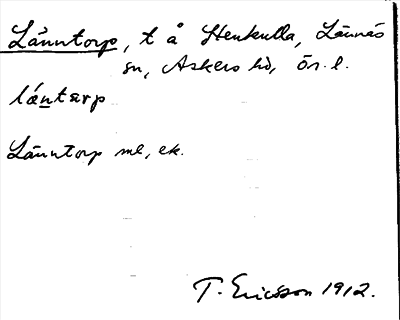 Länntorp, t å Stenkulla, Lännäs
sn, Askers hd, Ör. l.
lä́ntərp
Länntorp me, ek.
T. Ericsson 1912.